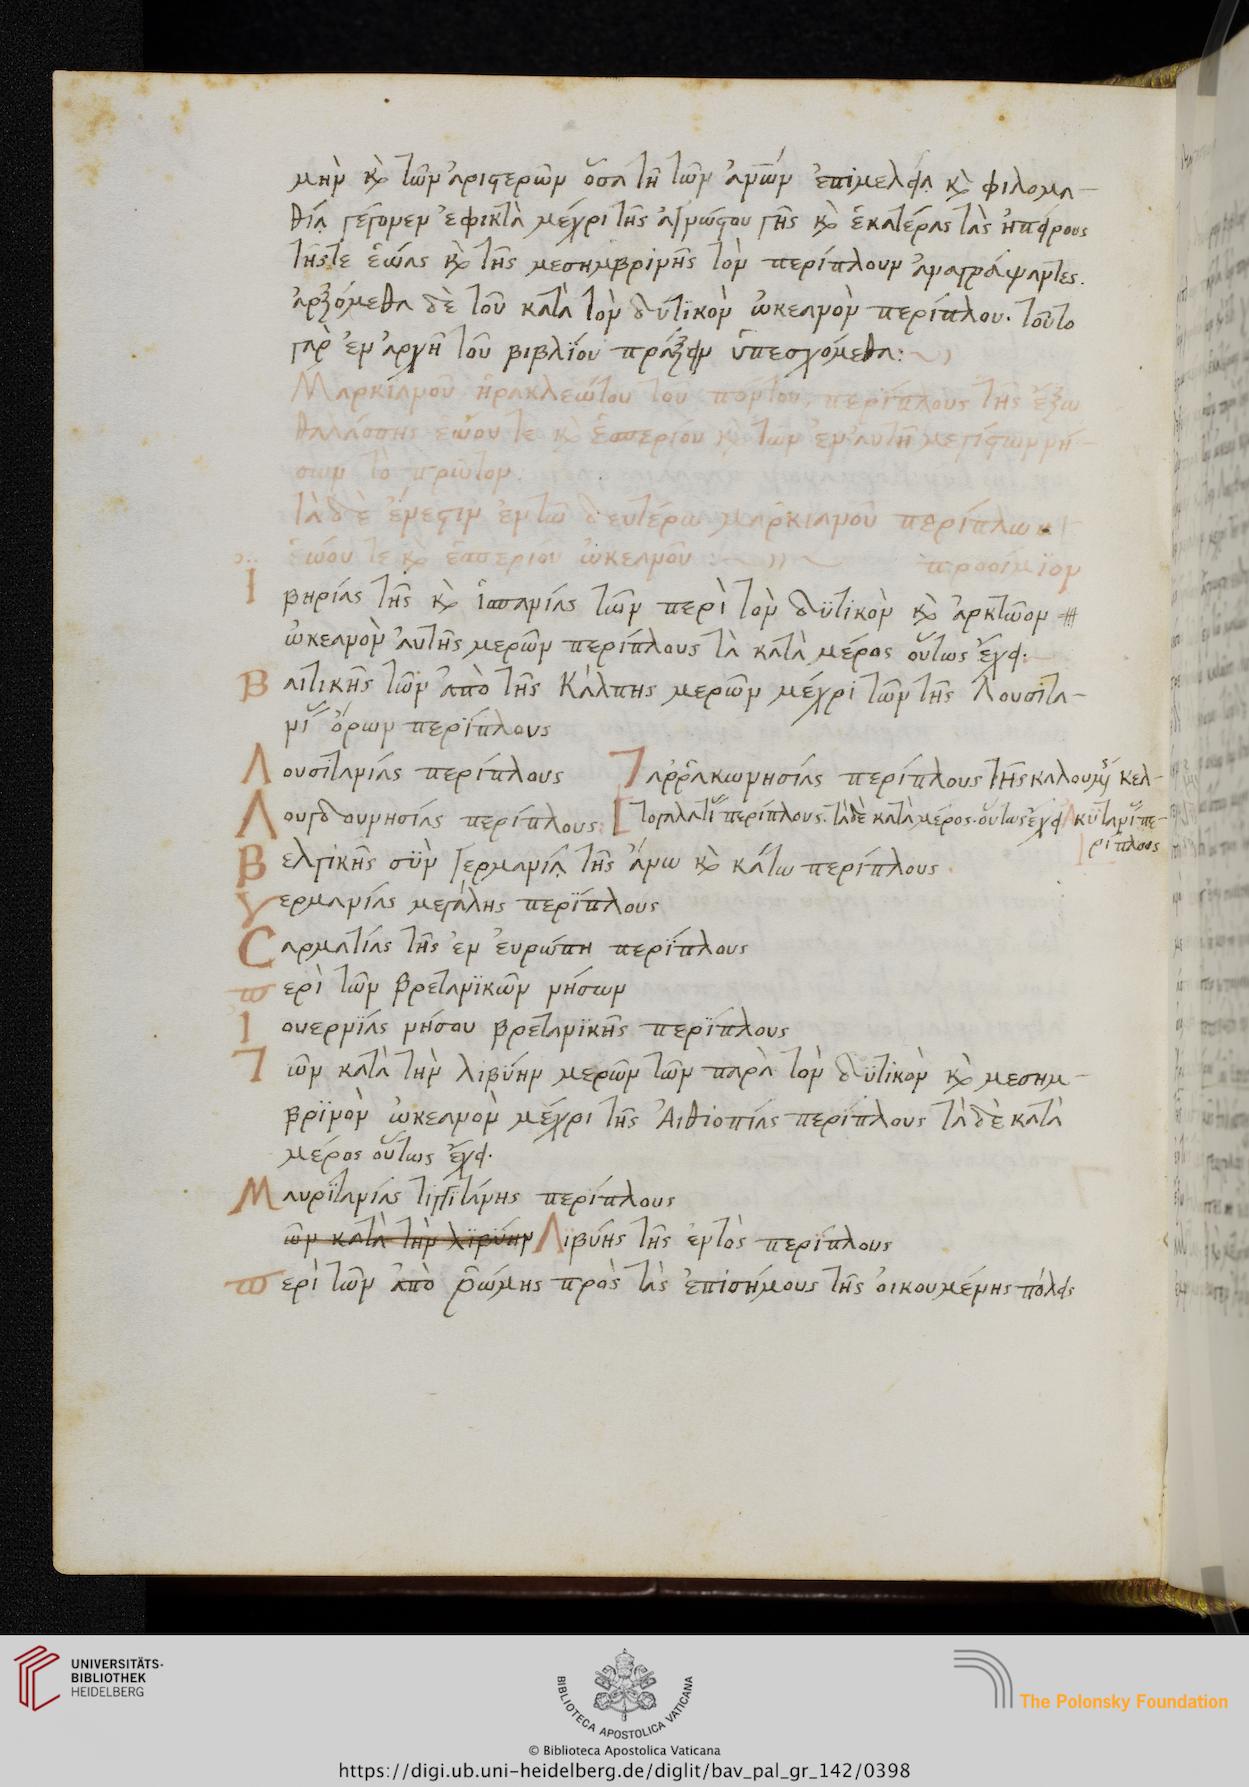 μὴν καὶ τῶν ἀριστερῶν ὅσα τῆ τῶν ἀνων ἐπιμελεία καὶ φιλομα-
θία γέγονεν ἐφικτὰ μέχρι τῆς ἀγνώστου γῆς καὶ ἑκατέρας τὰς ἠπείρους
τῆς τε ἑώας καὶ τῆς μεσημβρινῆς τὸν περίπλουν ἀναγράψαντες.
ἀρξόμεθα δὲ τοῦ κατὰ τὸν δϋτικὸν ὠκεανὸν περίπλου. τοῦτο
γὰρ ἐν ἀρχῆ τοῦ βιβλΐου πράξειν ὑπεσχόμεθα:
Μαρκιανοῦ ἡρακλεώτου τοῦ πόντου, περίπλους τῆς ἔξω
θαλάσσης ἑώου τε καὶ ἑσπερίου καὶ τῶν ἐν αὐτῆ μεγίστων νή-
σων τὸ πρῶτον.
τὰ δὲ ἔνεστιν ἐν τῶ δευτέρω μαρκιανοῦ περίπλω
ἑώου τε καὶ ἑσπερίου ὠκεανοῦ: προοίμϊον
Ιβηρίας τῆς καὶ ἱσπανίας τῶν περὶ τὸν δϋτικὸν καὶ ἀρκτῶον
ὠκεανὸν αὐτῆς μερῶν περίπλους τὰ κατὰ μέρος οὕτως ἔχει.
Βαιτικῆς τῶν ἀπὸ τῆς Κάλπης μερῶν μέχρι τῶν τῆς Λουσιτα-
νί ὅρων περίπλους
Λουσϊτανίας περίπλους Ταρρακωνησίας περίπλους τῆς καλουμ κελ-
Λουγδουνησίας περίπλους: τογαλατί περίπλους. τάδὲ κατὰ μέρος. οὕτως ἔχει Ακϋτανί πε-
ρίπλους
Βελγικῆς σϋν Γερμανία τῆς ἄνω καὶ κάτω περίπλους
γερμανίας μεγάλης περϊπλους
Σαρματίας τῆς ἐν εὐρώπη περϊπλους
περὶ τῶν βρεταννϊκῶν νήσων
Ιουερνϊας νήσου βρετανϊκῆς περϊπλους
Τῶν κατὰ τὴν λιβύην μερῶν τῶν παρὰ τὸν δϋτικὸν καὶ μεσημ-
βρϊνὸν ὠκεανὸν μέχρι τῆς Αἰθιοπίας περίπλους τάδὲ κατὰ
μέρος οὕτως ἔχει.
Μαυρϊτανίας τιγγϊτάνης περίπλους
ῶν κατὰ τὴν λϊβϋην Λϊβύης τῆς ἐντὸς περίπλους
περὶ τῶν ἀπὸ ῥώμης πρὸς τὰς ἐπισήμους τῆς οἰκουμένης πόλεις
UNIVERSITÄTS-
BIBLIOTHEK
HEIDELBERG
BIBLIOTECA APOSTOLICA VATICANA
The Polonsky Foundation
© Biblioteca Apostolica Vaticana
https://digi.ub.uni-heidelberg.de/diglit/bav_pal_gr_142/0398